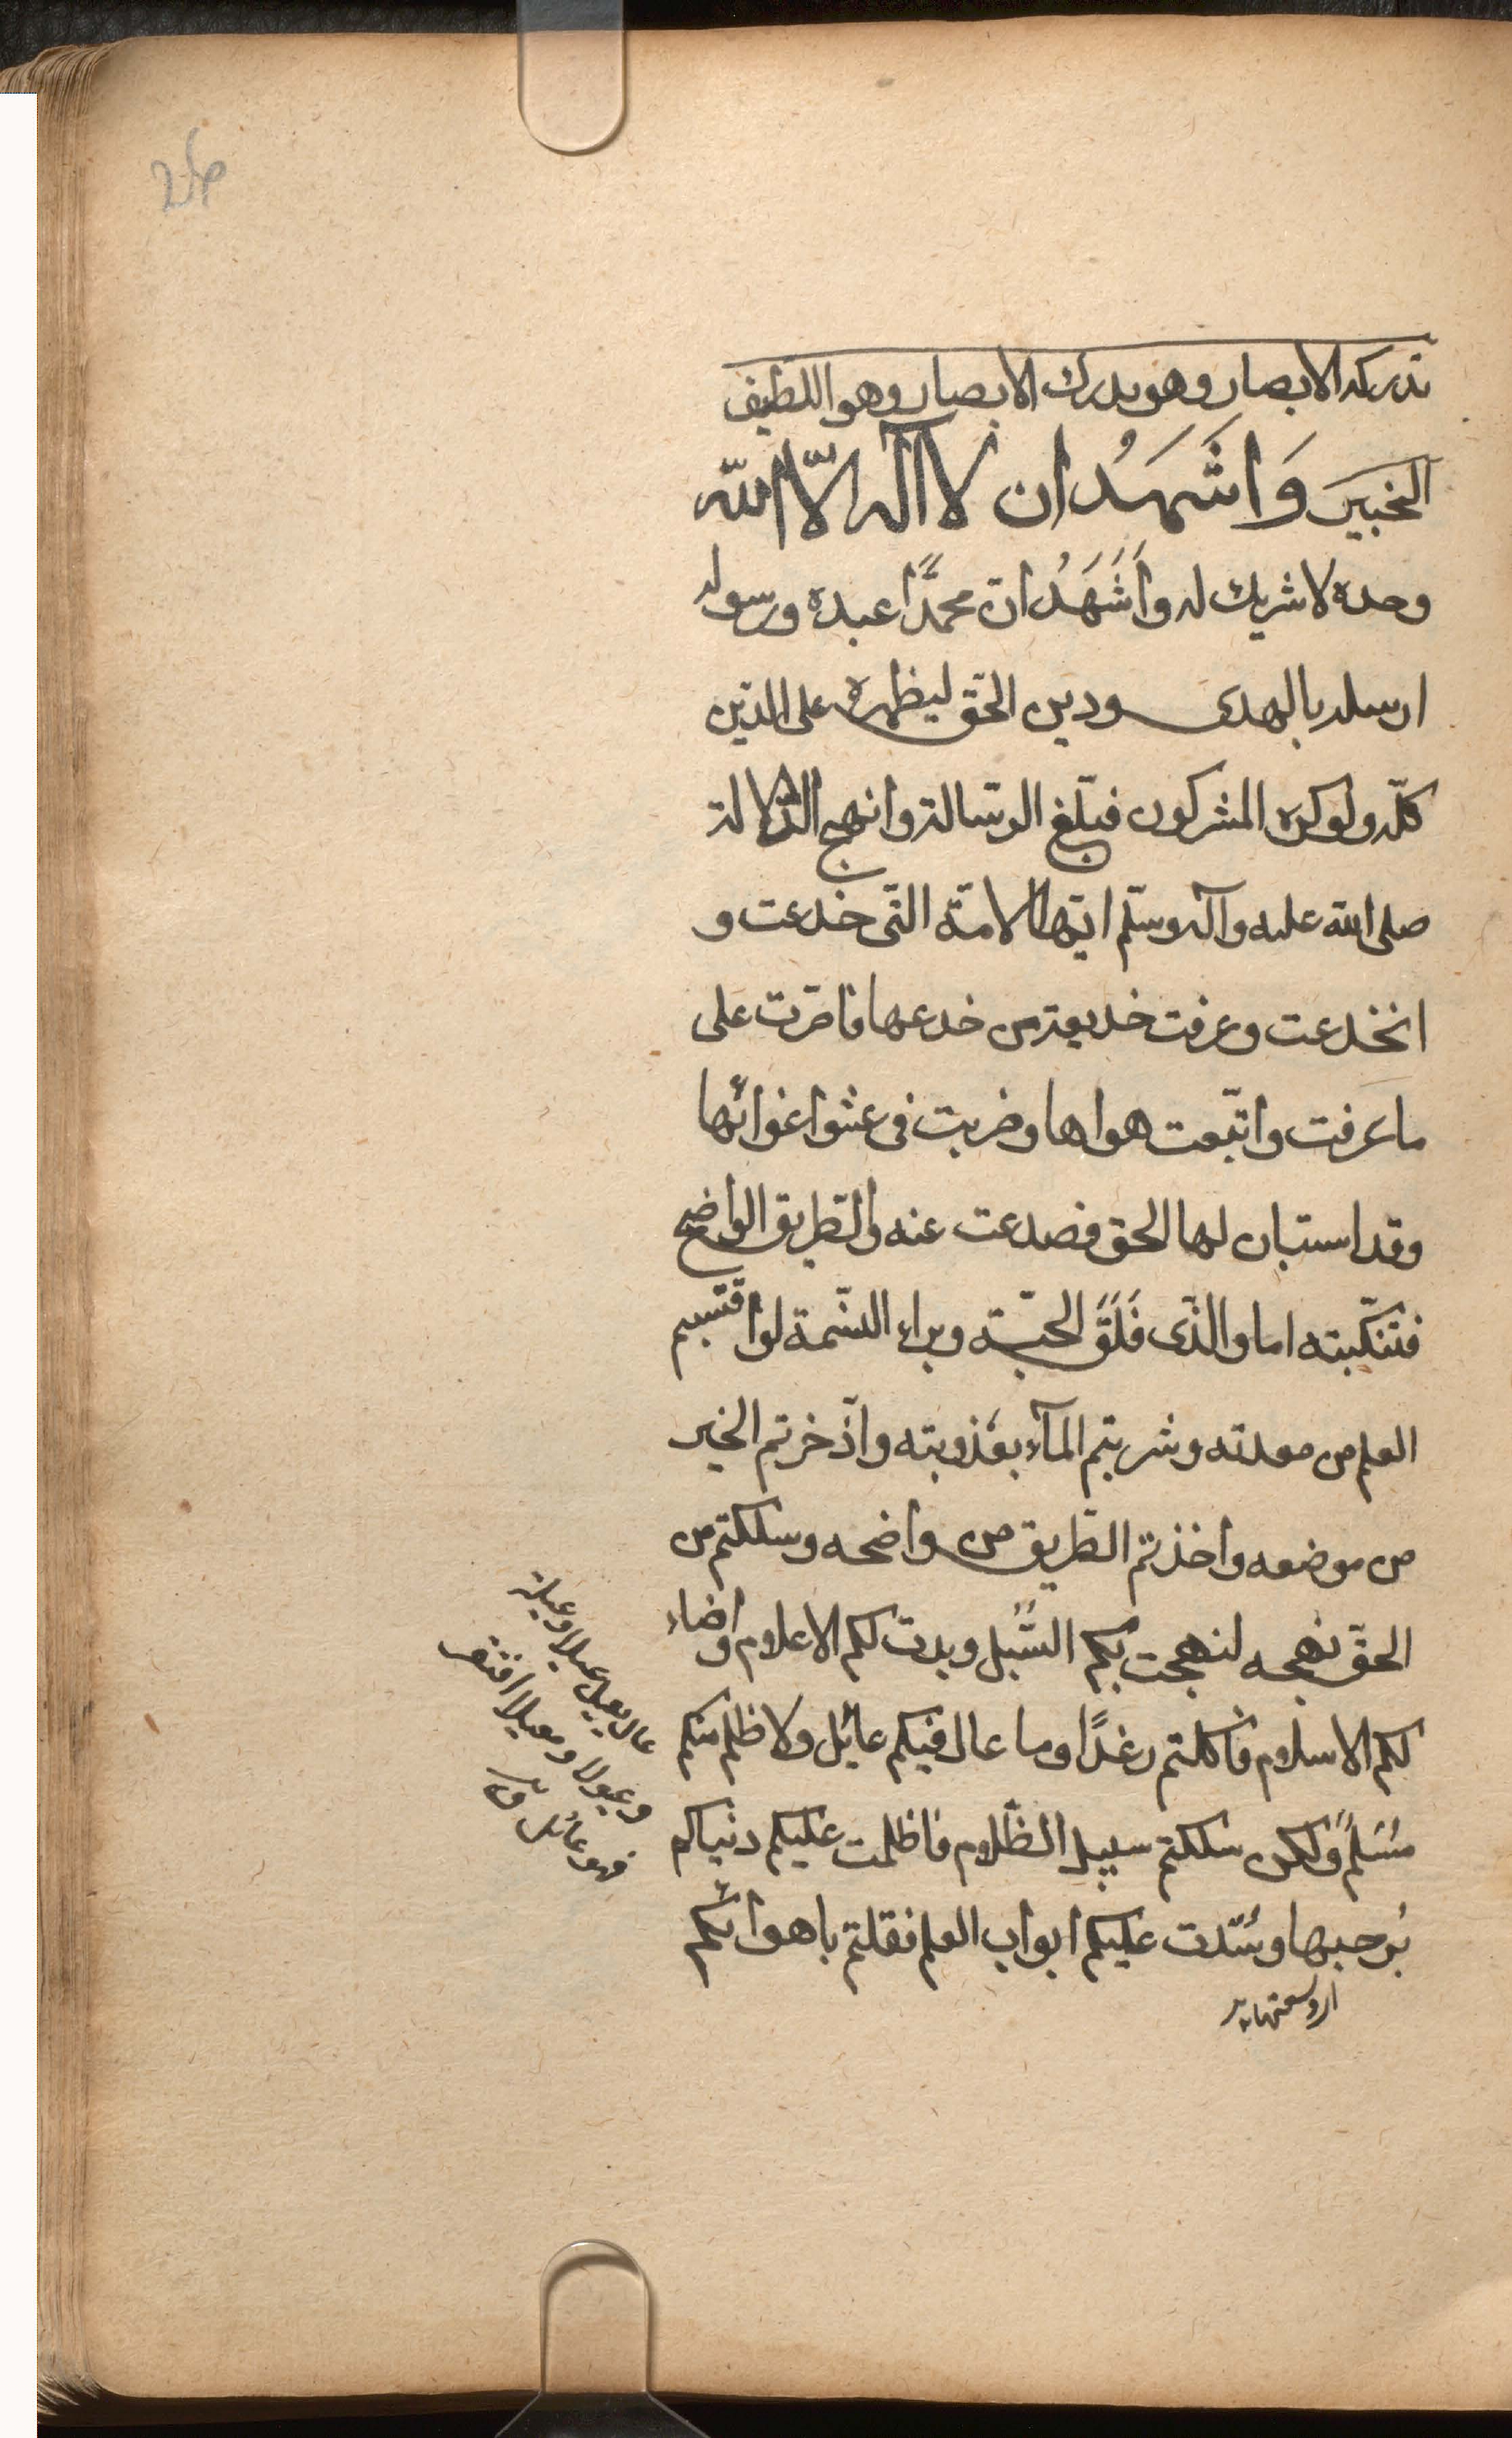 تدركه الابصار وهو يدرك الابصار وهو اللطيف
الخبير وَاَشْهَدُ ان لا آله الّا الله
وحده لا شريك له واَشَهَدُ انّ محمّدًا عبده ورسوله
ارسله بالهدى ودين الحقّ ليظهره على الدّين
كلّه ولو كره المشركون فبلّغ الرّسالة وانهج الدّلالة
صلى الله عليه وآله وسلّم ايّها الامّة الّتى خدعت و
انخدعت وعرفت خديعة من خدعها فاصرّت على
ما عرفت واتّبعت هواها وضربت فى عشوا غوائها
وقد استبان لها الحق فصدعت عنه والطّريق الواضح
فتنكّبته اما والّذى فَلَقَ الحبّة وبراء النّسمة لو اقتبستم
العلم من معدنه وشربتم المآء بعُذوبته وادّخرتم الخير
من موضعه واخذتم الطّريق من واضحه وسلكتم من
الحقّ نهجه لنهجت بكم السُّبُل وبدت لكم الاعلام واضاء
لكم الاسلام فاكلتم رغدًا وما عال فيكم عائل ولا ظلم منكم
مُسَلمٌ ولكن سلكتم سبيل الظّلام فاظلمت عليكم دنياكم
بُرحبها وسُدّت عليكم ابواب العلم فقلتم باهوائكم
عال يعيل عيلا وعيلة
وعيولا ومعيلا افتقر
فهو عائل ق